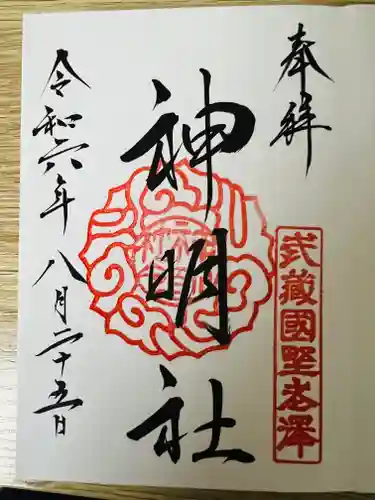 奉拜
武蔵國野老澤
神明社
令和六年八月二十五日